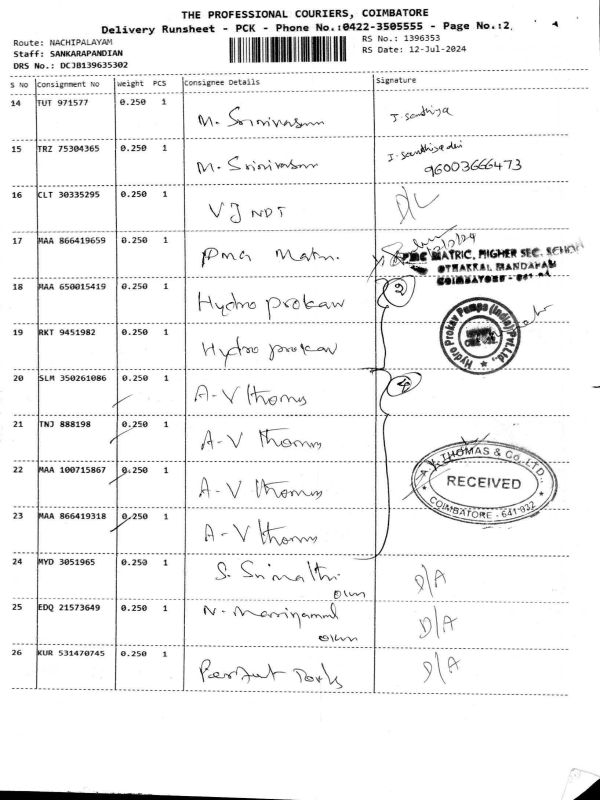 THE PROFESSIONAL COURIERS, COIMBATORE
Delivery Runsheet - PCK - Phone No.:0422-3505555 - Page No.:2
Route: NACHIPALAYAM
RS No.: 1396353
Staff: SANKARAPANDIAN
RS Date: 12-Jul-2024
DRS No.: DCJB139635302
S No Consignment No Weight PCS Consignee Details Signature
14 TUT 971577 0.250 1 M. Srinivasan J. Santhiya
15 TRZ 75304365 0.250 1 M. Srinivasan J. Santhiyadevi
96003666473
16 CLT 30335295 0.250 1 VJ NDT D/L
17 MAA 866419659 0.250 1 PMG Matn.
PMC MATRIC. HIGHER SEC. SCHOOL
OTHAKKAL MANDAPAM
COIMBATORE
18 MAA 650015419 0.250 1 Hydro prokav 2
Hydro Prokav Pumps (India) Pvt. Ltd.,
19 RKT 9451982 0.250 1 Hydro prokav
20 SLM 350261086 0.250 1 A-V Thomas 4
21 TNJ 888198 0.250 1 A-V Thomas
22 MAA 100715867 0.250 1 A-V Thomas
A.V. THOMAS & Co. LTD.,
RECEIVED
COIMBATORE - 641 032
23 MAA 866419318 0.250 1 A-V Thomas
24 MYD 3051965 0.250 1 S. Srimathi D/A
okm
25 EDQ 21573649 0.250 1 N. Mariyammal D/A
okm
26 KUR 531470745 0.250 1 Perfut Tools D/A